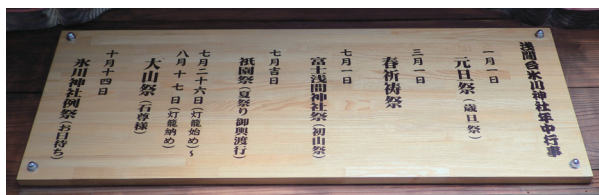 浅間台氷川神社年中行事
一月一日
元旦祭（歳旦祭）
三月一日
春祈祷祭
七月一日
富士浅間神社祭（初山祭）
七月吉日
祇園祭（夏祭り御輿渡行）
七月二十六日（灯籠始め）～
八月十七日（灯籠納め）
大山祭（石尊様）
十月十四日
氷川神社例祭（お日待ち）